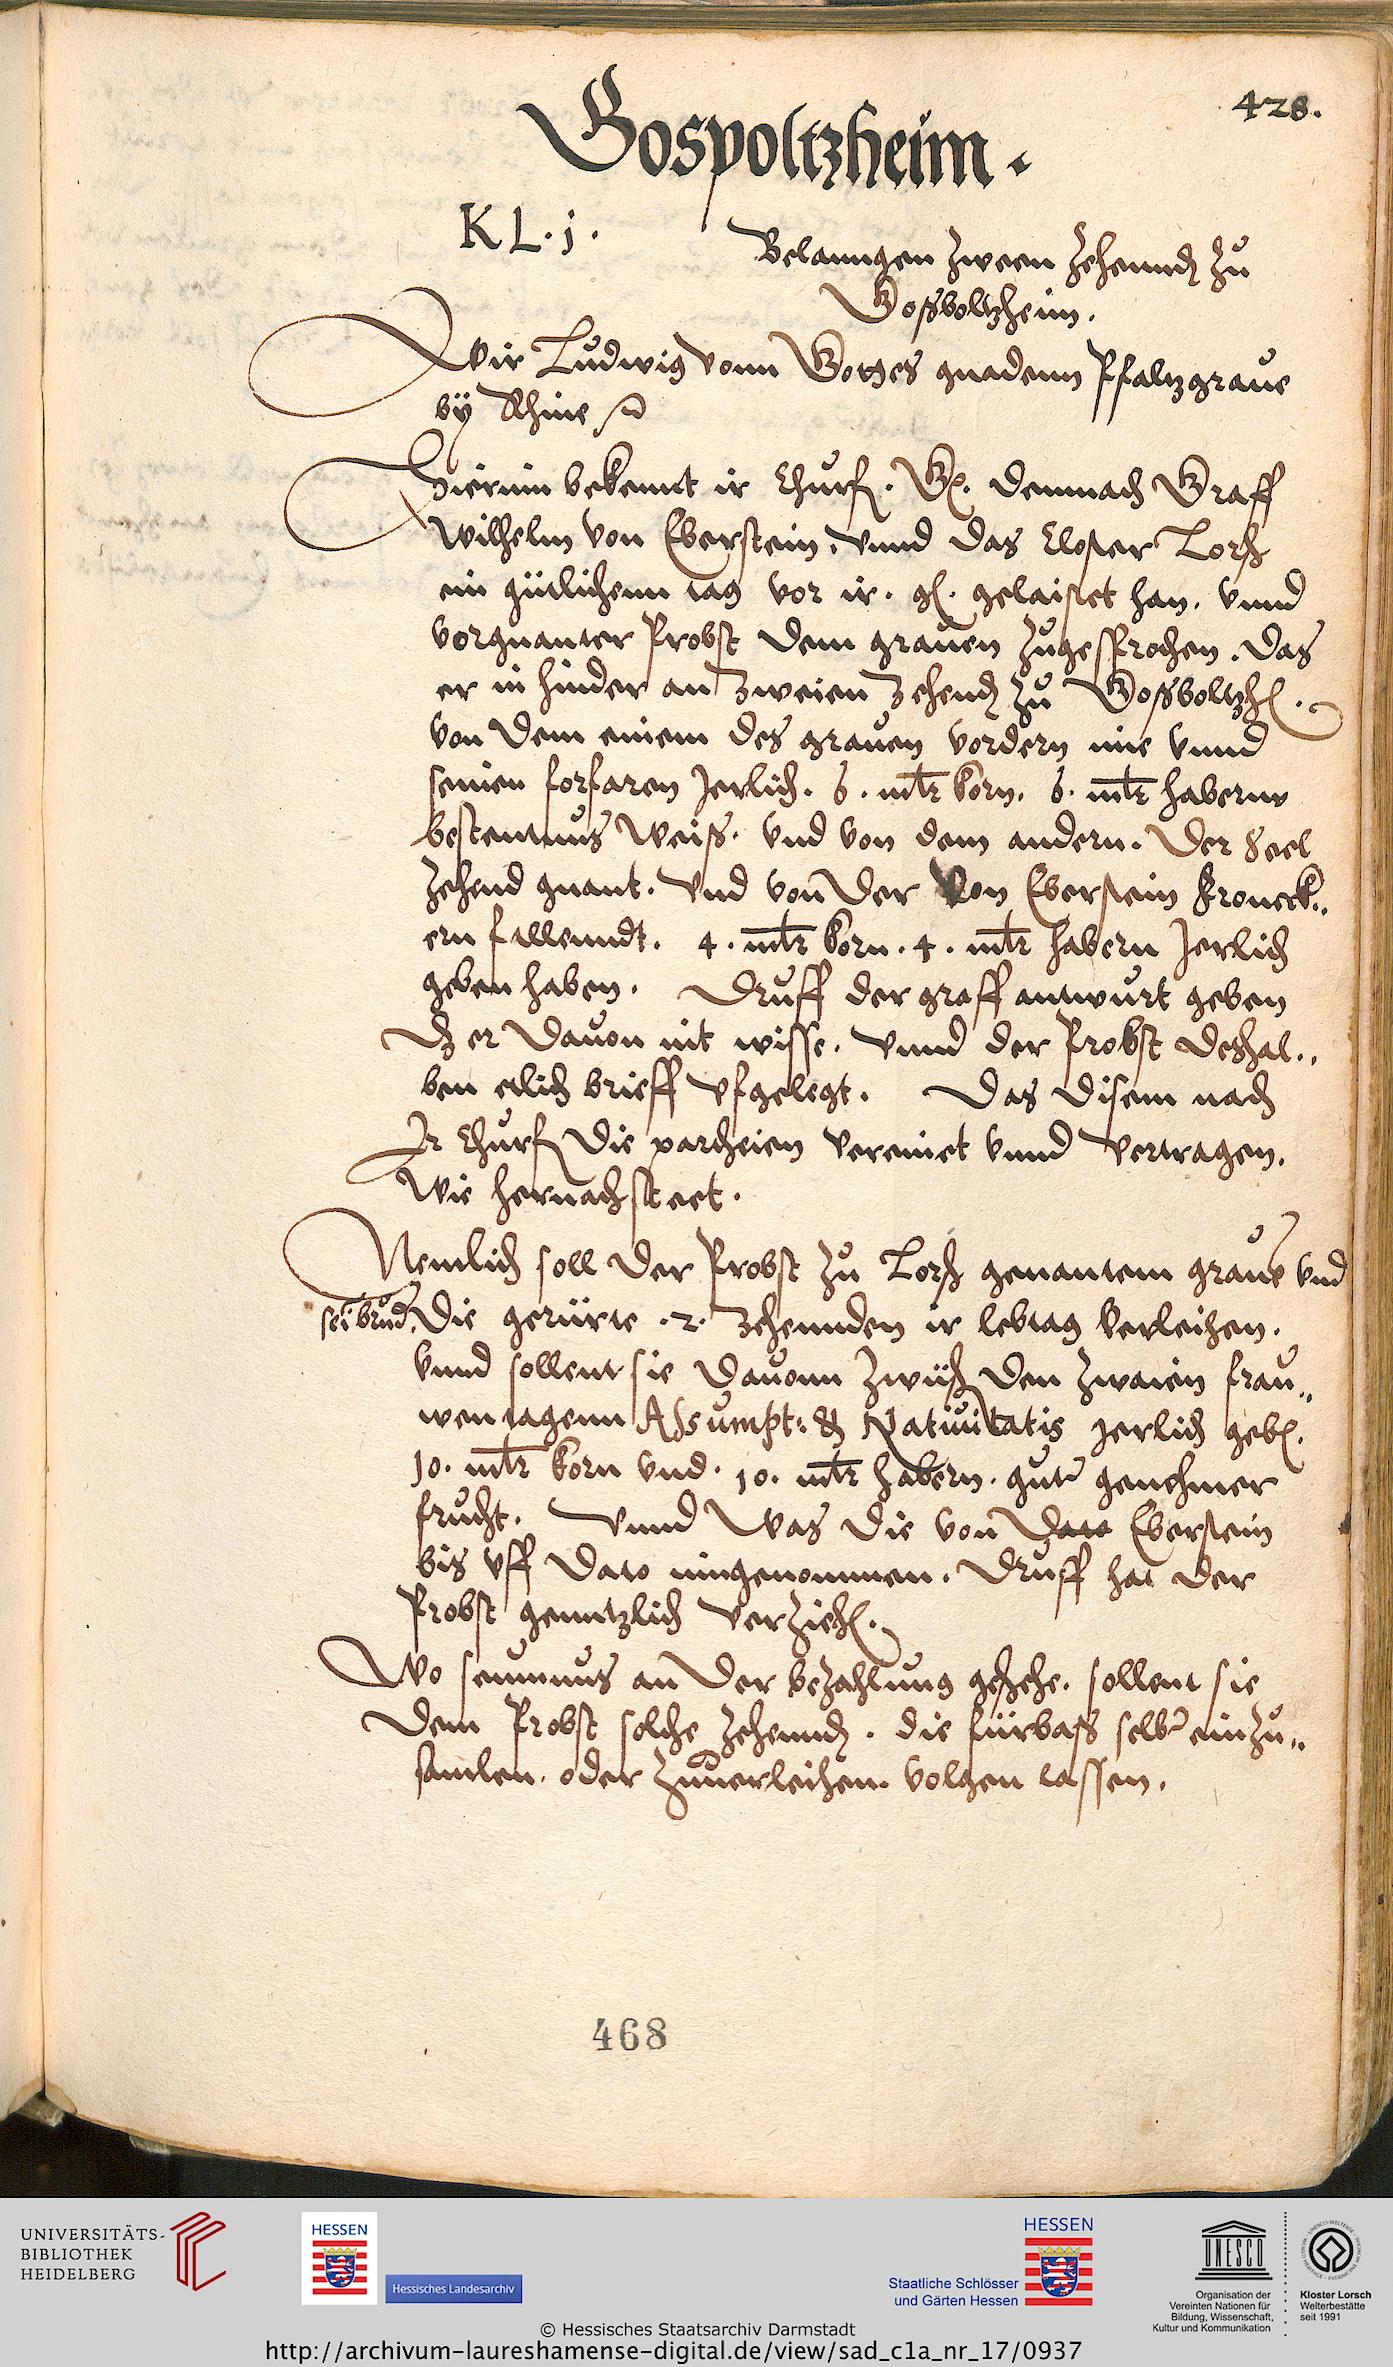 428.
Gospoltzheim.
K L. j.
Belanngen zween zehennd zu
Goßboltzheim.
Wir Ludwig vonn Gottes gnadenn Pfaltzgraue
by Rhine
Hierinn bekennt ir Churf. G. demnach Graff
Wilhelm von Eberstein, vnnd das Closter Lorsch
ein gütlichenn tag vor ir. g. gelaistet han. vnnd
vorgnanter Probst dem grauen zugesprochen. das
er in hinder an zweien zehend zu Goßboltzh.
von dem einem des grauen vordern ime vnnd
seinen forfaren Jerlich. 6. mltr korn. 6. mltr habernn
bestentnus weiß. vnd von dem andern. der Seel
zehend gnant. vnd von der von Eberstein Fronerk..
ern fallenndt. 4. mltr korn. 4. mltr habern Jerlich
geben haben. Druff der graff antwurt geben
dz er dauon nit wisse. vnnd der Probst deshal..
ben etlich brieff vfgelegt. Das disem nach
Ir Churf die partheien vereniet vnnd vertragen.
Wie hernach steet.
Nemlich soll der Probst zu Lorsch genantem grauen vnd
sei brud. die gerürte .2. zehennden ir lebtag verleihen.
vnnd sollent sie dauonn zwüsch den zwaien frau..
wen tagenn Assumpt: & Natiuitatis jerlich geb.
10. mltr korn vnd. 10. mltr habern. guter genehmer
frucht. Vnnd was die von Dato Eberstein
bis vff dato inngenommen. Druff hat der
Probst genntzlich verzich.
Wo seumnus an der bezahlung geschehe. sollent sie
dem Probst solche zehennd. die fürbaß selbr einzu..
samlen. oder zuuerleihen. volgen lassen.
468
UNIVERSITÄTS-
BIBLIOTHEK
HEIDELBERG
HESSEN
Hessisches Landesarchiv
HESSEN
Staatliche Schlösser
und Gärten Hessen
UNESCO
Organisation der
Vereinten Nationen für
Bildung, Wissenschaft,
Kultur und Kommunikation
Kloster Lorsch
Welterbestätte
seit 1991
© Hessisches Staatsarchiv Darmstadt
http://archivum-laureshamense-digital.de/view/sad_c1a_nr_17/0937